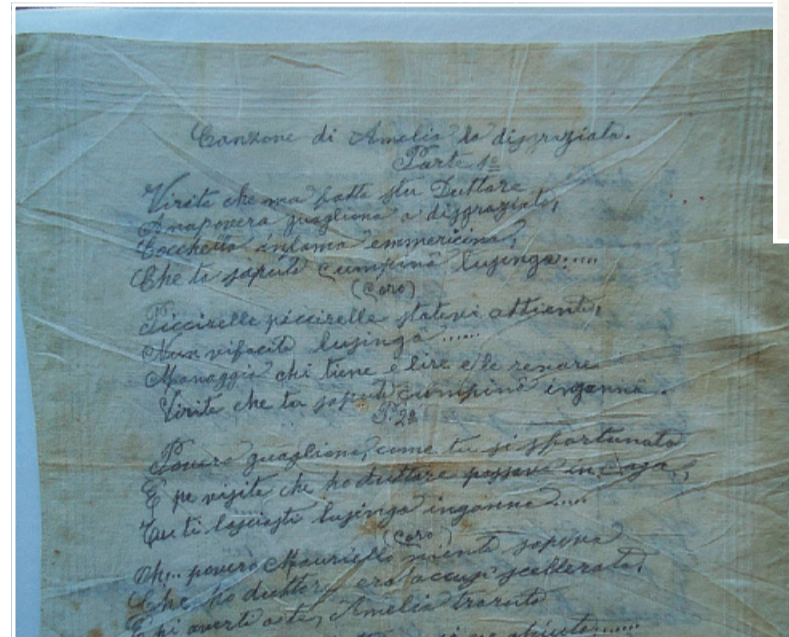 Canzone di Amelia la disgraziata.
Parte 1ª
Virite che ma fatto stu Duttore
A na povera quagliona a disgraziato,
Cocchetto
Che ta saputo cumpinà lusinga.....
(Coro)
Piccirelle piccirelle stateni attiente,
Nun vifacite lusingà.....
Managgia chi tiene e lire e le renare
Virite che ta saputo cumpinà ingannà.
P. 2ª
Povera quagliona, come tu si sfortunata
E pe visite che ho duttore passava in casa,
Tu ti lasciasti lusinga inganna.....
(Coro)
Oh... povero Mauriello niente sapeva
Che ho duttore era accusì scellerato,
E pi averti oste, Amelia traruto